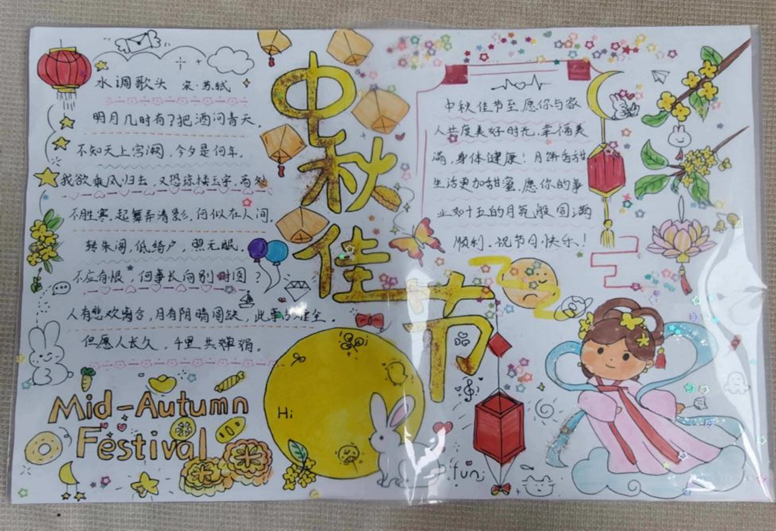 水调歌头 宋·苏轼
明月几时有？把酒问青天。
不知天上宫阙，今夕是何年。
我欲乘风归去，又恐琼楼玉宇，高处
不胜寒，起舞弄清影，何似在人间。
转朱阁，低绮户，照无眠。
不应有恨，何事长向别时圆？
人有悲欢离合，月有阴晴圆缺，此事古难全。
但愿人长久，千里共婵娟。
Mid-Autumn
Festival
中秋佳节
Hi
fun
中秋佳节至愿你与家
人共度美好时光，幸福美
满，身体健康！月饼香甜
生活更加甜蜜，愿你的事
业如十五的月亮般圆满
顺利，祝节日快乐！